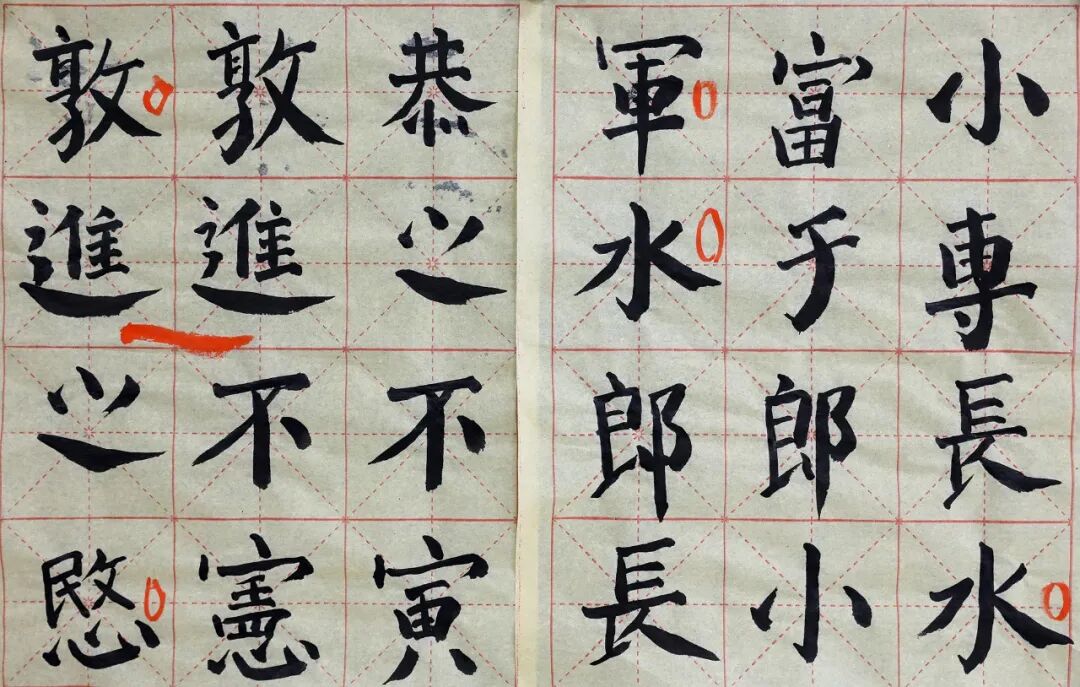 小専長水
富子郎小
軍水郎長
恭之不寅
敦進不憲
敦進之愍